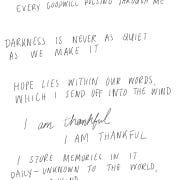 EVERY GOODWILL PULSING THROUGH ME
DARKNESS IS NEVER AS QUIET
AS WE MAKE IT
HOPE LIES WITHIN OUR WORDS,
WHICH I SEND OFF INTO THE WIND
I am thankful
I AM THANKFUL
I STORE MEMORIES IN IT
DAILY-UNKNOWN TO THE WORLD,